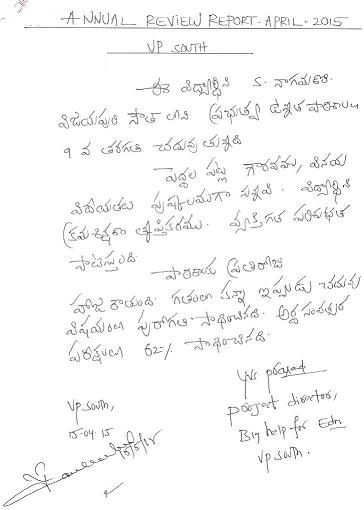 ANNUAL REVIEW REPORT. APRIL. 2015
VP SOUTH
ఈ విద్యార్థిని S. నాగమణి
విజయపురి సౌత్ లోని ప్రభుత్వ ఉన్నత పాఠశాల
9 వ తరగతి చదువు తున్నది
పెద్దల పట్ల గౌరవము, వినయ
విధేయతలు పుష్కలముగా వున్నవి. విద్యార్థిని
క్రమశిక్షణా తృప్తికరము. వ్యక్తిగత పరిశుభ్రత
పాటిస్తుంది.
పాఠశాలకు ప్రతిరోజు
హాజరౌతుంది. గతంలో కన్నా ఇప్పుడు చదువు
విషయంలో పురోగతి సాధించినది. అర్ధ సంవత్సర
పరీక్షలలో 62% సాధించినది.
VP South,
15-04-15
project director,
Big help for Edn
VP South.